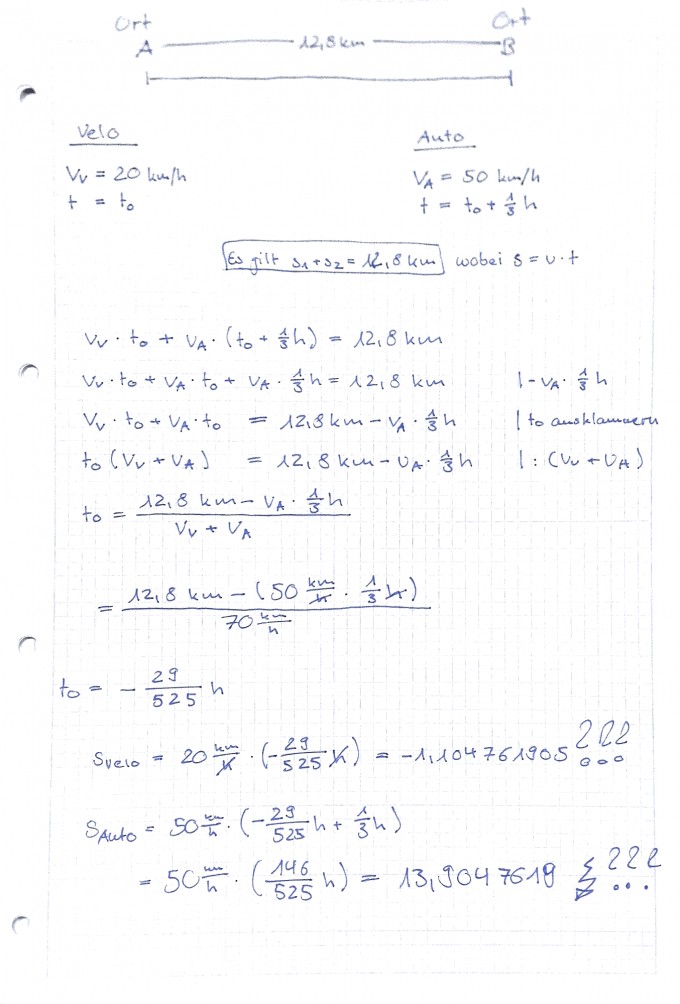 Ort Ort
A 12,8 km B
Velo Auto
Vv = 20 km/h VA = 50 km/h
t = to t = to + 1/3 h
Es gilt s1 + s2 = 12,8 km wobei s = v · t
Vv · to + VA · (to + 1/3 h) = 12,8 km
Vv · to + VA · to + VA · 1/3 h = 12,8 km | - VA · 1/3 h
Vv · to + VA · to = 12,8 km - VA · 1/3 h | to ausklammern
to (Vv + VA) = 12,8 km - VA · 1/3 h | : (Vv + VA)
to = (12,8 km - VA · 1/3 h) / (Vv + VA)
= (12,8 km - (50 km/h · 1/3 h)) / (70 km/h)
to = - 29/525 h
SVelo = 20 km/h · (-29/525 h) = -1,104761905 ???
SAuto = 50 km/h · (-29/525 h + 1/3 h)
= 50 km/h · (146/525 h) = 13,9047619 ???